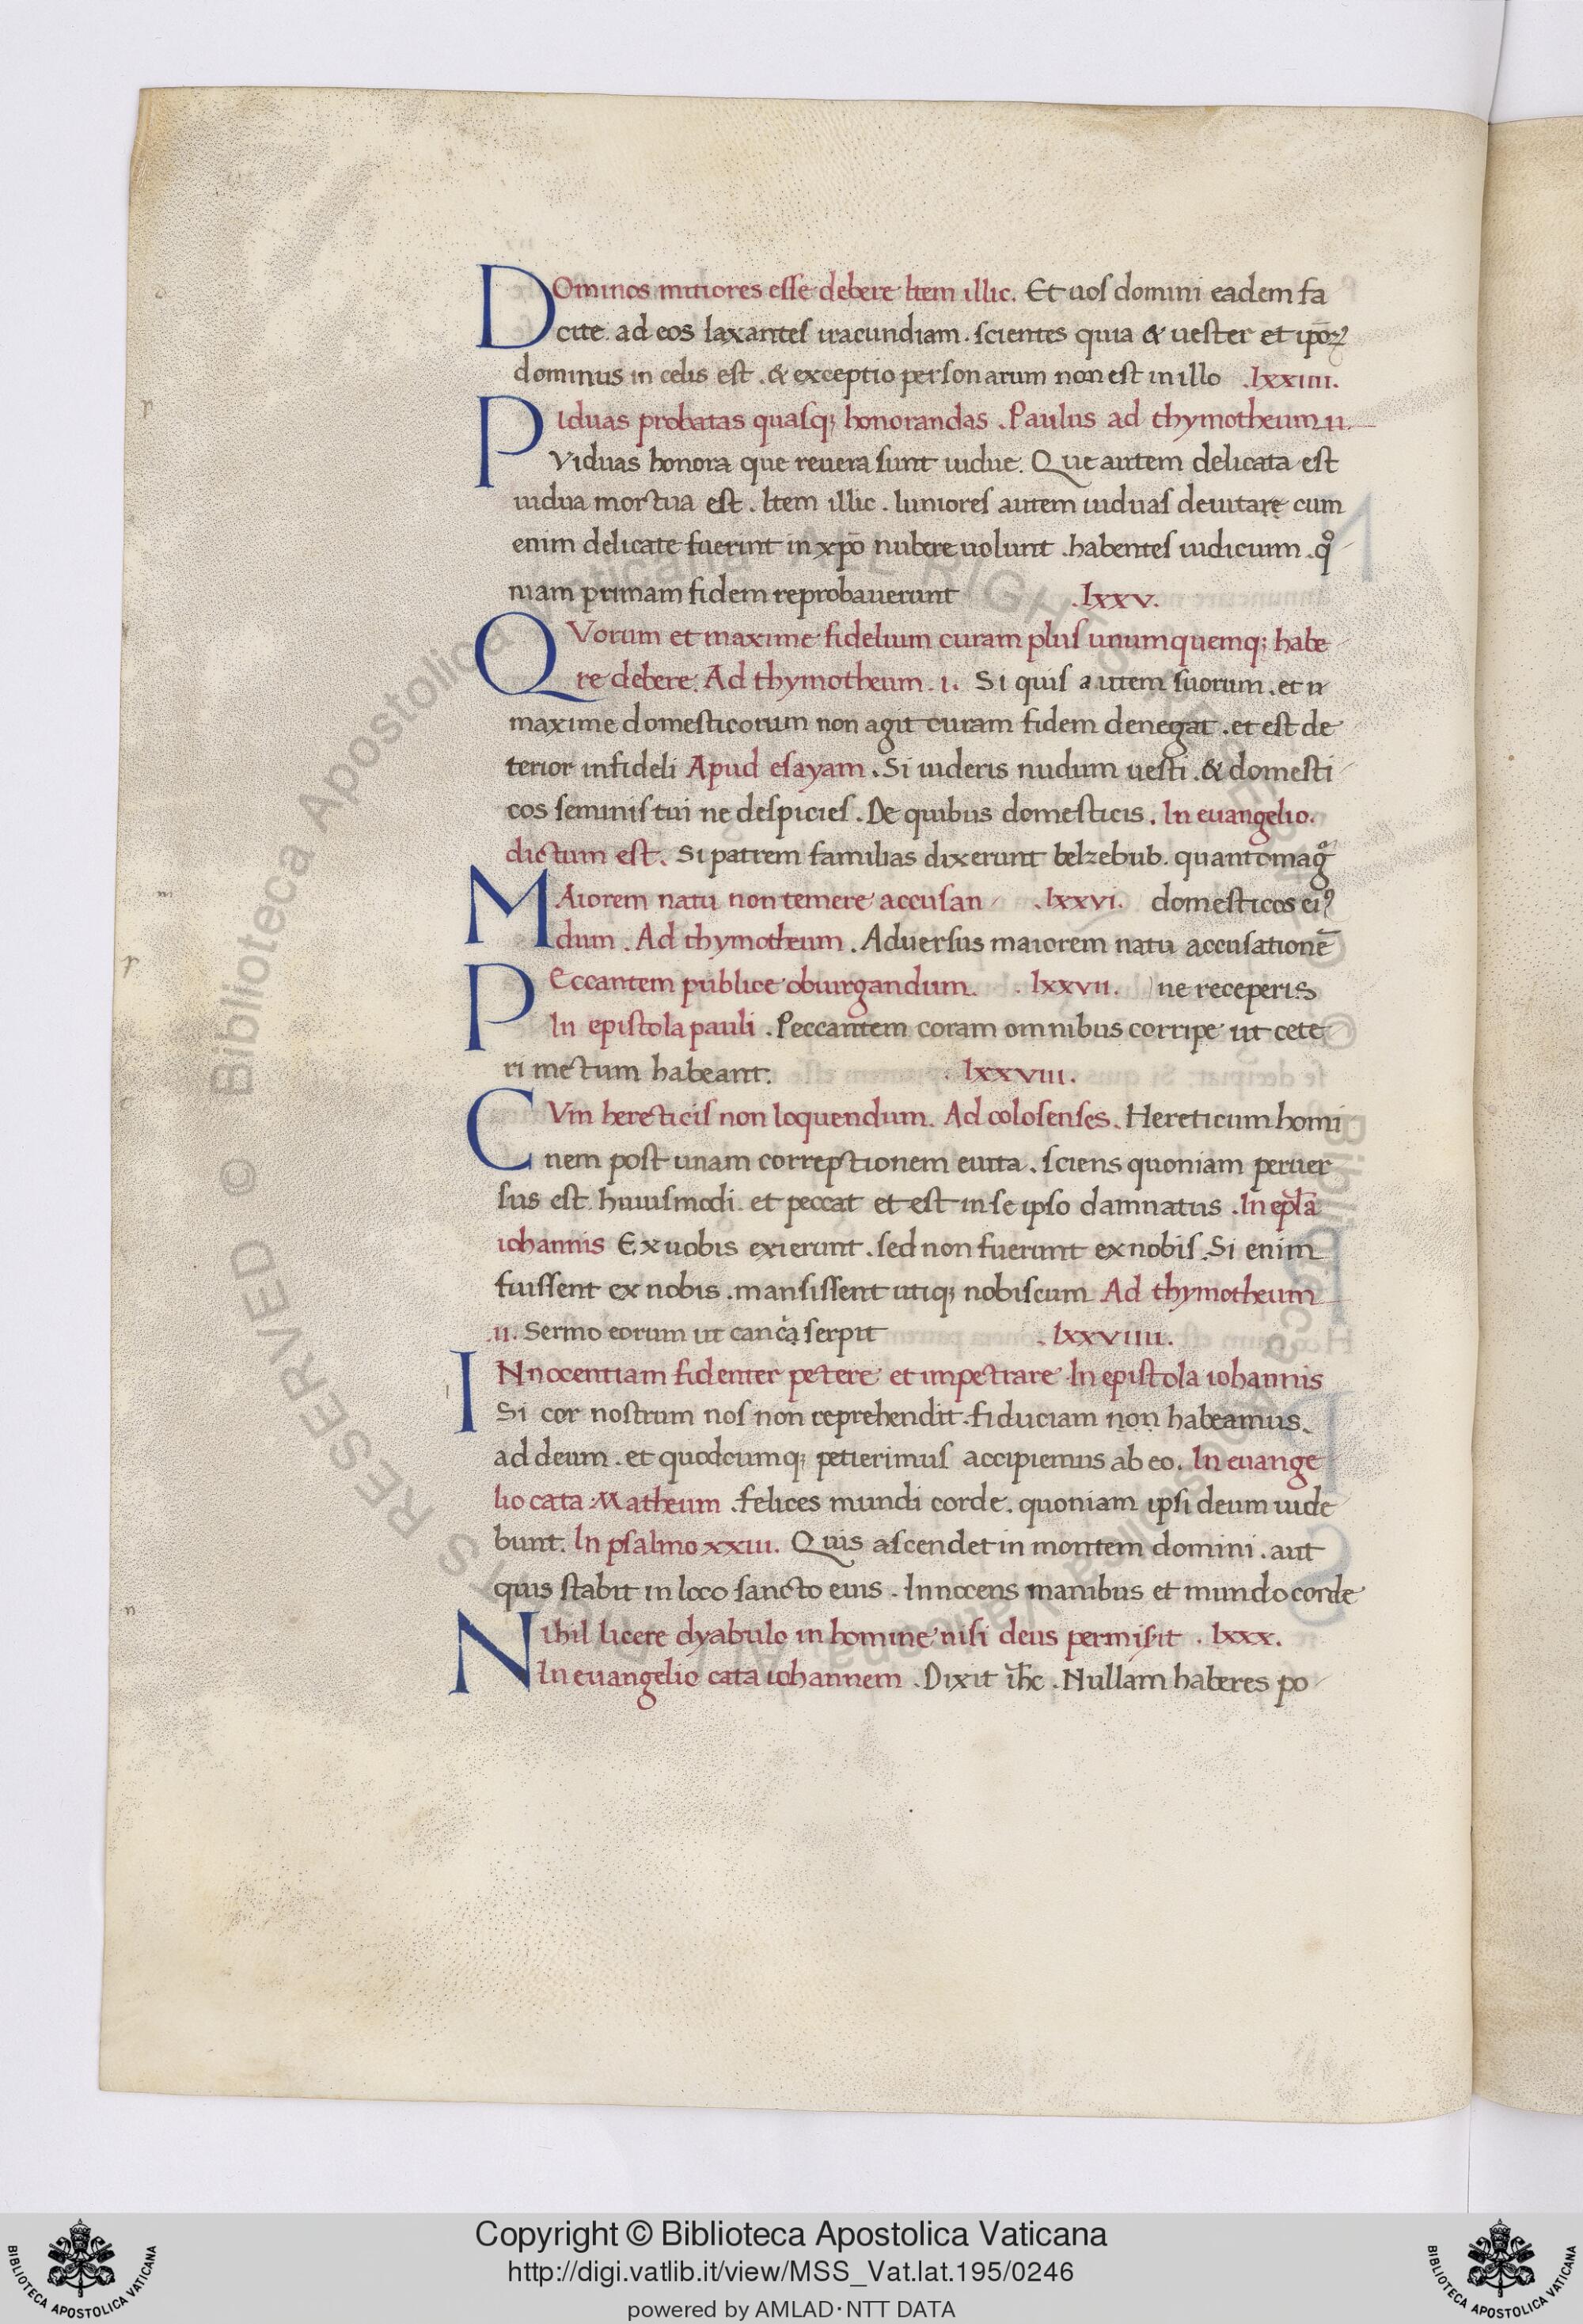 DOminos mitiores esse debere Item illic. Et uos domini eadem fa
cite. ad eos laxantes iracundiam. scientes quia & uester et ipoꝝ
dominus in celis est. & exceptio personarum non est in illo .lxxiiii.
PIduas probatas quasq; honorandas. Paulus ad thymotheum .ii.
Viduas honora que reuera sunt uidue. Que autem delicata est
uidua mortua est. Item illic. Iuniores autem uiduas deuitare cum
enim delicate fuerint in xp̄o nubere uolunt .habentes iudicium .qͦ
niam primam fidem reprobauerunt .lxxv.
QVorum et maxime fidelium curam plus unumquemq; habe
re debere. Ad thymotheum .i. Si quis autem suorum .et n
maxime domesticorum non agit curam fidem denegat .et est de
terior infideli Apud esayam. Si uideris nudum uesti .& domesti
cos seminis tui ne despicies. De quibus domesticis. In euangelio.
dictum est. Si patrem familias dixerunt belzebub. quantomag̊
MAiorem natu non temere accusan .lxxvi. domesticos ei⁹
dum. Ad thymotheum. Aduersus maiorem natu accusationē
PEccantem publice obiurgandum. .lxxvii. ne receperis
In epistola pauli. Peccantem coram omnibus corripe ut cete
ri metum habeant. .lxxviii.
CVm hereticis non loquendum. Ad colosenses. Hereticum homi
nem post unam correptionem euita. sciens quoniam peruer
sus est huiusmodi. et peccat et est in se ipso damnatus. In epl̄a
iohannis Ex uobis exierunt. sed non fuerunt ex nobis. Si enim
fuissent ex nobis. mansissent utiq; nobiscum Ad thymotheum
.ii. Sermo eorum ut canc̓a serpit .lxxviiii.
INnocentiam fidenter petere et impetrare In epistola iohannis
Si cor nostrum nos non reprehendit. fiduciam non habeamus.
ad deum. et quodcumq; petierimus accipiemus ab eo. In euange
lio cata Matheum .felices mundi corde. quoniam ipsi deum uide
bunt. In psalmo xxiii. Quis ascendet in montem domini. aut
quis stabit in loco sancto eius. Innocens manibus et mundo corde
Nihil licere dyabulo in homine nisi deus permisit .lxxx.
In euangelio cata iohannem. Dixit ih̄c. Nullam haberes po
Copyright © Biblioteca Apostolica Vaticana
http://digi.vatlib.it/view/MSS_Vat.lat.195/0246
powered by AMLAD·NTT DATA
BIBLIOTECA APOSTOLICA VATICANA
BIBLIOTECA APOSTOLICA VATICANA